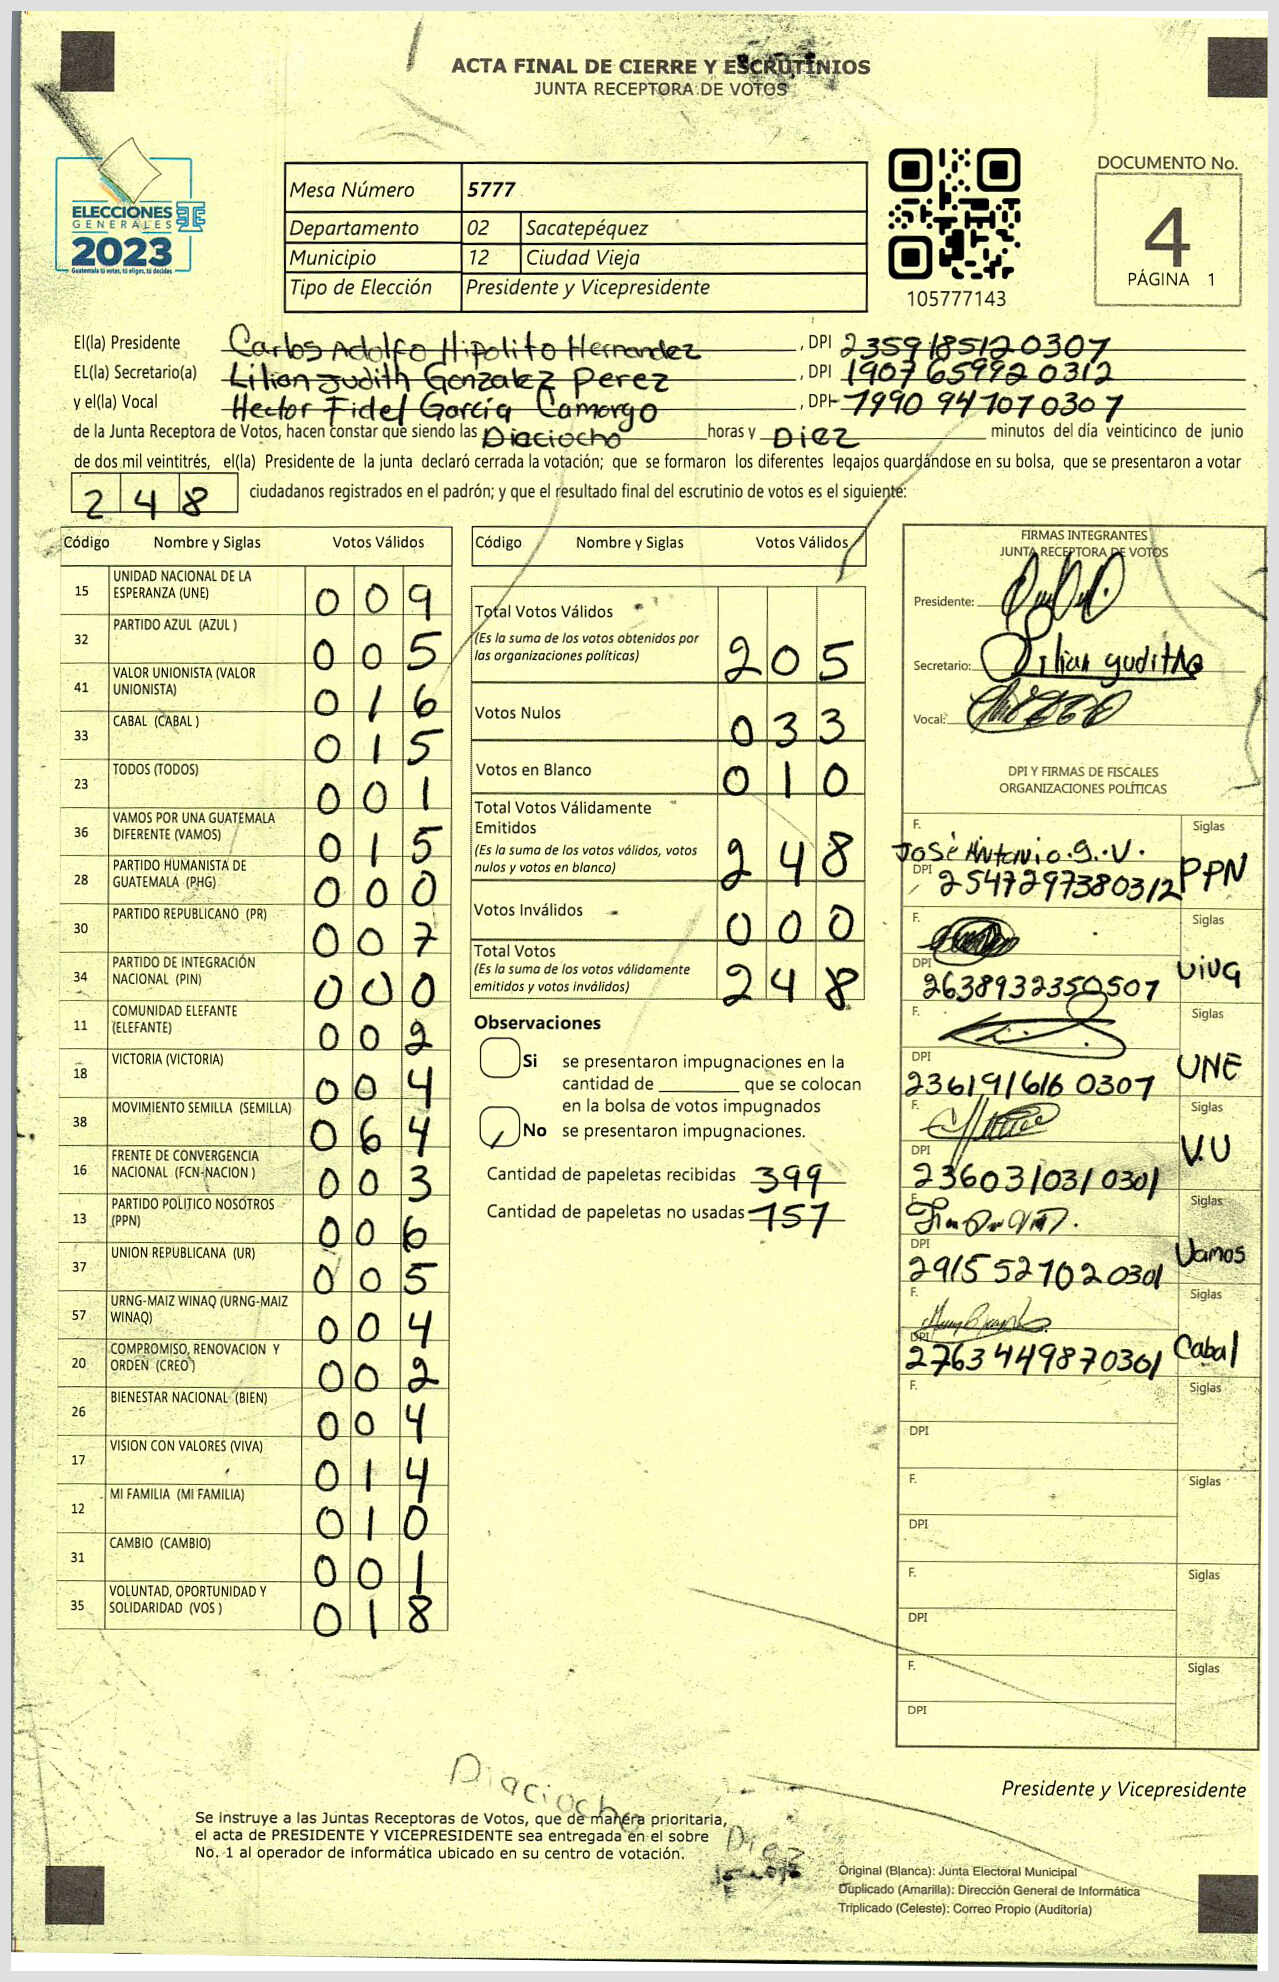 ACTA FINAL DE CIERRE Y ESCRUTINIOS
JUNTA RECEPTORA DE VOTOS
ELECCIONES
GENERALES
2023
Guatemala tú votas, tú eliges, tú decides
Mesa Número 5777
Departamento 02 Sacatepéquez
Municipio 12 Ciudad Vieja
Tipo de Elección Presidente y Vicepresidente
105777143
DOCUMENTO No.
4
PÁGINA 1
El(la) Presidente Carlos Adolfo Hipolito Hernandez, DPI 2359185120307
EL(la) Secretario(a) Lilian Judith Gonzalez Perez, DPI 1907659920312
y el(la) Vocal Hector Fidel García Camargo, DPI 7990947070307
de la Junta Receptora de Votos, hacen constar que siendo las Diaciocho horas y Diez minutos del día veinticinco de junio
de dos mil veintitrés, el(la) Presidente de la junta declaró cerrada la votación; que se formaron los diferentes legajos guardándose en su bolsa, que se presentaron a votar
248 ciudadanos registrados en el padrón; y que el resultado final del escrutinio de votos es el siguiente:
Código Nombre y Siglas Votos Válidos
15 UNIDAD NACIONAL DE LA ESPERANZA (UNE) 009
32 PARTIDO AZUL (AZUL ) 005
41 VALOR UNIONISTA (VALOR UNIONISTA) 016
33 CABAL (CABAL ) 015
23 TODOS (TODOS) 001
36 VAMOS POR UNA GUATEMALA DIFERENTE (VAMOS) 015
28 PARTIDO HUMANISTA DE GUATEMALA (PHG) 000
30 PARTIDO REPUBLICANO (PR) 007
34 PARTIDO DE INTEGRACIÓN NACIONAL (PIN) 000
11 COMUNIDAD ELEFANTE (ELEFANTE) 002
18 VICTORIA (VICTORIA) 004
38 MOVIMIENTO SEMILLA (SEMILLA) 064
16 FRENTE DE CONVERGENCIA NACIONAL (FCN-NACION ) 003
13 PARTIDO POLITICO NOSOTROS (PPN) 006
37 UNION REPUBLICANA (UR) 005
57 URNG-MAIZ WINAQ (URNG-MAIZ WINAQ) 004
20 COMPROMISO, RENOVACION Y ORDEN (CREO ) 002
26 BIENESTAR NACIONAL (BIEN) 004
17 VISION CON VALORES (VIVA) 014
12 MI FAMILIA (MI FAMILIA) 010
31 CAMBIO (CAMBIO) 001
35 VOLUNTAD, OPORTUNIDAD Y SOLIDARIDAD (VOS ) 018
Código Nombre y Siglas Votos Válidos
Total Votos Válidos 205
(Es la suma de los votos obtenidos por
las organizaciones políticas)
Votos Nulos 033
Votos en Blanco 010
Total Votos Válidamente
Emitidos 248
(Es la suma de los votos válidos, votos
nulos y votos en blanco)
Votos Inválidos 000
Total Votos 248
(Es la suma de los votos válidamente
emitidos y votos inválidos)
Observaciones
Si se presentaron impugnaciones en la
cantidad de ________ que se colocan
en la bolsa de votos impugnados
No se presentaron impugnaciones.
Cantidad de papeletas recibidas 399
Cantidad de papeletas no usadas 151
FIRMAS INTEGRANTES
JUNTA RECEPTORA DE VOTOS
Presidente:
Secretario: Lilian Judith
Vocal:
DPI Y FIRMAS DE FISCALES
ORGANIZACIONES POLÍTICAS
F. José Antonio.G.V. Siglas
DPI 2547297380312 PPN
F. Siglas
DPI 2638932350507 VIVA
F. Siglas
DPI 2361916160307 UNE
F. Siglas
DPI 2360310310301 V.U
F. Siglas
DPI 2915527020301 Vamos
F. Siglas
DPI 2763449870301 Cabal
F. Siglas
DPI
F. Siglas
DPI
F. Siglas
DPI
F. Siglas
DPI
Presidente y Vicepresidente
Diaciocho
Diez
Se instruye a las Juntas Receptoras de Votos, que de manera prioritaria,
el acta de PRESIDENTE Y VICEPRESIDENTE sea entregada en el sobre
No. 1 al operador de informática ubicado en su centro de votación.
Original (Blanca): Junta Electoral Municipal
Duplicado (Amarilla): Dirección General de Informática
Triplicado (Celeste): Correo Propio (Auditoría)